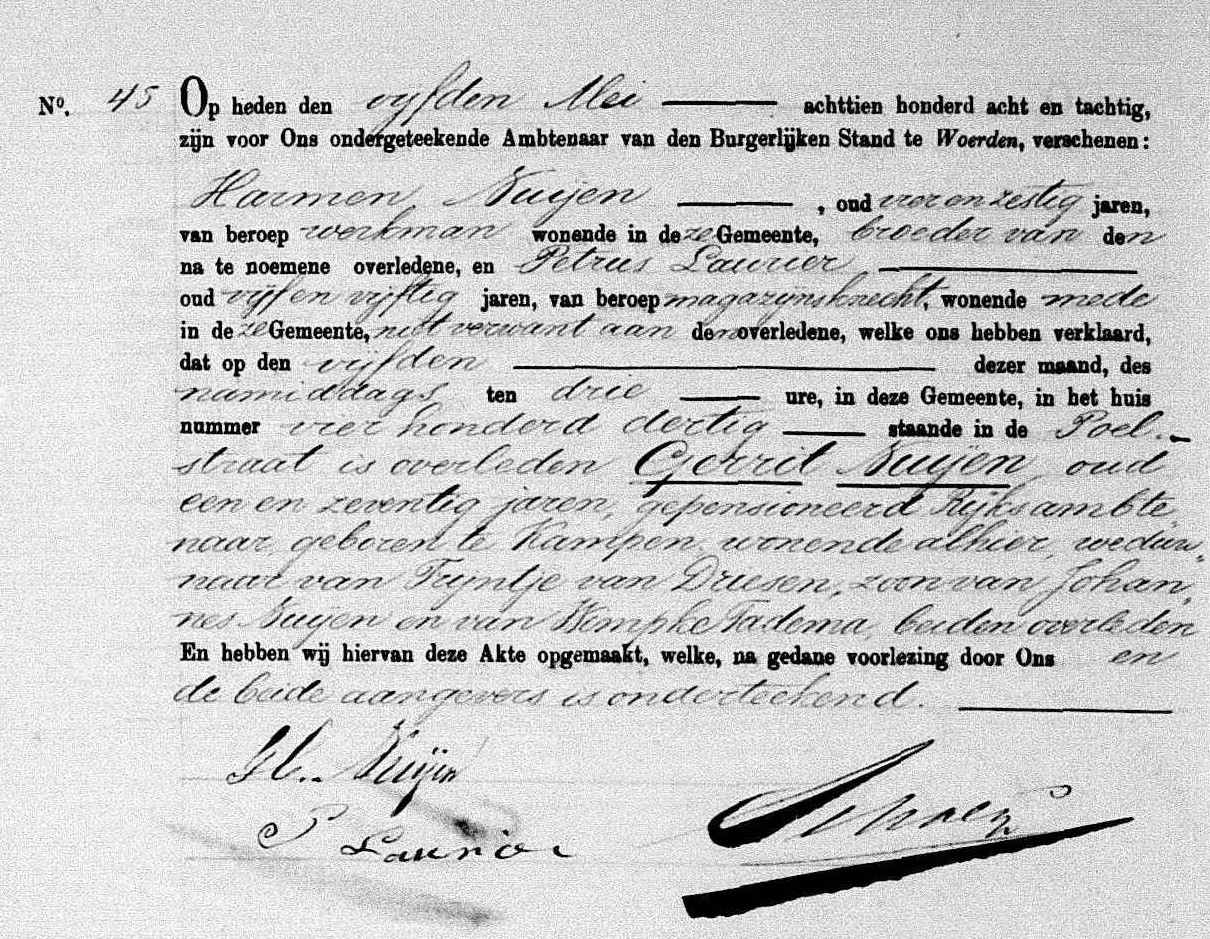 No. 45 Op heden den vijfden Mei achttien honderd acht en tachtig,
zijn voor Ons ondergeteekende Ambtenaar van den Burgerlijken Stand te Woerden, verschenen:
Harmen Nuijen, oud vier en zestig jaren,
van beroep werkman wonende in deze Gemeente, broeder van den
na te noemene overledene, en Petrus Laurier
oud vijf en vijftig jaren, van beroep magazijnsknecht, wonende mede
in deze Gemeente, niet verwant aan den overledene, welke ons hebben verklaard,
dat op den vijfden dezer maand, des
namiddags ten drie ure, in deze Gemeente, in het huis
nummer vier honderd dertig staande in de Poel-
straat is overleden Gerrit Nuijen, oud
een en zeventig jaren, gepensioneerd Rijksambte
naar, geboren te Kampen, wonende alhier, weduw„
naar van Trijntje van Driesen, zoon van Johan„
nes Nuijen en van Wempke Tadema, beiden overleden
En hebben wij hiervan deze Akte opgemaakt, welke, na gedane voorlezing door Ons en
de beide aangevers is onderteekend.
H. Nuijen
P Laurier